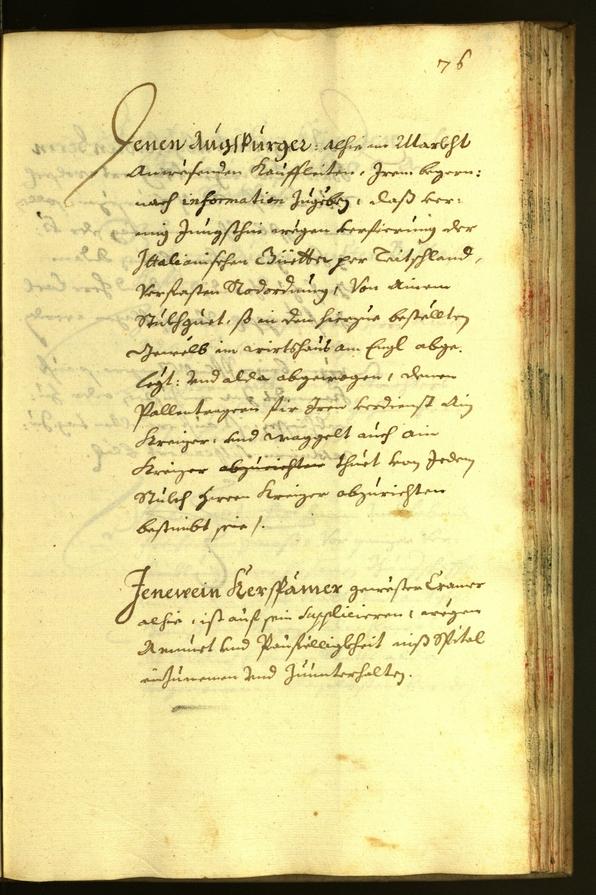 76
Jenen Augspurger: alhie im Marckht
Anwesenden Kauffleiten, Irem begern:
nach information Zugeben, daß ver:
mig Jungsthin wegen verfierung der
Jttalianischen Güetter per Teitschland,
verfasten Rodordnung, Von ainem
Stuckhguet, so in den hierzue bestelten
Gewelb im wirtshaus am Engl abge:
legt: Und alda abgewogen, denen
Pallentragern fir Iren verdienst Ain
Kreizer: und waggelt auch ain
Kreizer abzurichten thuet von Jedem
Stuckh Kreizer abzurichten
bestimbt seie /.
Jenewein Kerspamer gewester Cramer
alhie, ist auf sein Suppliciern, wegen
Armuet und Paufelligkheit inß Spital
einzunemen Und Zuunterhalten.